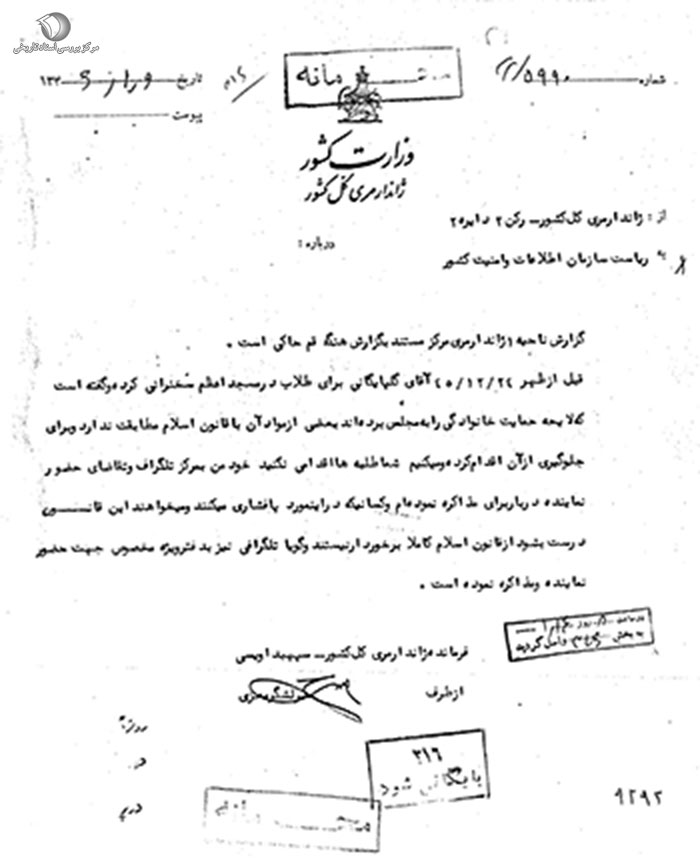 مرکز بررسی اسناد تاریخی
محرمانه
شماره
تاریخ ۱۳۴
پیوست
وزارت کشور
ژاندارمری کل کشور
از: ژاندارمری کل کشور – رکن ۲ دایره ۲
به ریاست سازمان اطلاعات وامنیت کشور
درباره:
گزارش ناحیه ۱ ژاندارمری مرکز مستند بگزارش هنگ قم حاکی است.
قبل از ظهر ۴۵/۱۲/۲۴ آقای گلپایگانی برای طلاب درمسجد اعظم سخنرانی کرده وگفته است
که لایحه حمایت خانوادگی را به مجلس برده اند بعضی از مواد آن با قانون اسلام مطابقت ندارد وبرای
جلوگیری ازآن اقدام کرده ومیکنیم شما طلبه ها اقدامی نکنید خود من بمرکز تلگراف وتقاضای حضور
نماینده دربار برای مذاکره نموده‌ام وکسانیکه دراینمورد پافشاری میکنند ومیخواهند این قانـــــون
درست بشود از قانون اسلام کاملا برخوردار نیستند وگویا تلگرافی نیز بدفتر ویژه مخصوص جهت حضور
نماینده ومذاکره نموده است.
فرمانده ژاندارمری کل کشور – سپهبد اویسی
از طرف
۳۱۶
بایگانی شود
محرمانه
۹۲۹۲